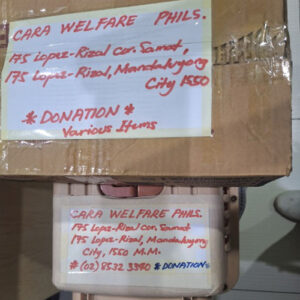 CARA WELFARE PHILS.
175 Lopez-Rizal cor. Samat,
175 Lopez-Rizal, Mandaluyong
City 1550
* DONATION *
Various Items
CARA WELFARE PHILS.
175 Lopez-Rizal cor. Samat
175 Lopez-Rizal, Mandaluyong
City, 1550 M.M.
# (02) 8532 3340 *DONATION*